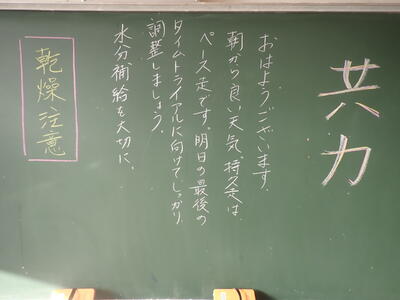 共力
おはようございます。
朝から良い天気。持久走は
ペース走です。明日の最後の
タイムトライアルに向けてしっかり
調整しましょう。
水分補給を大切に。
乾燥注意